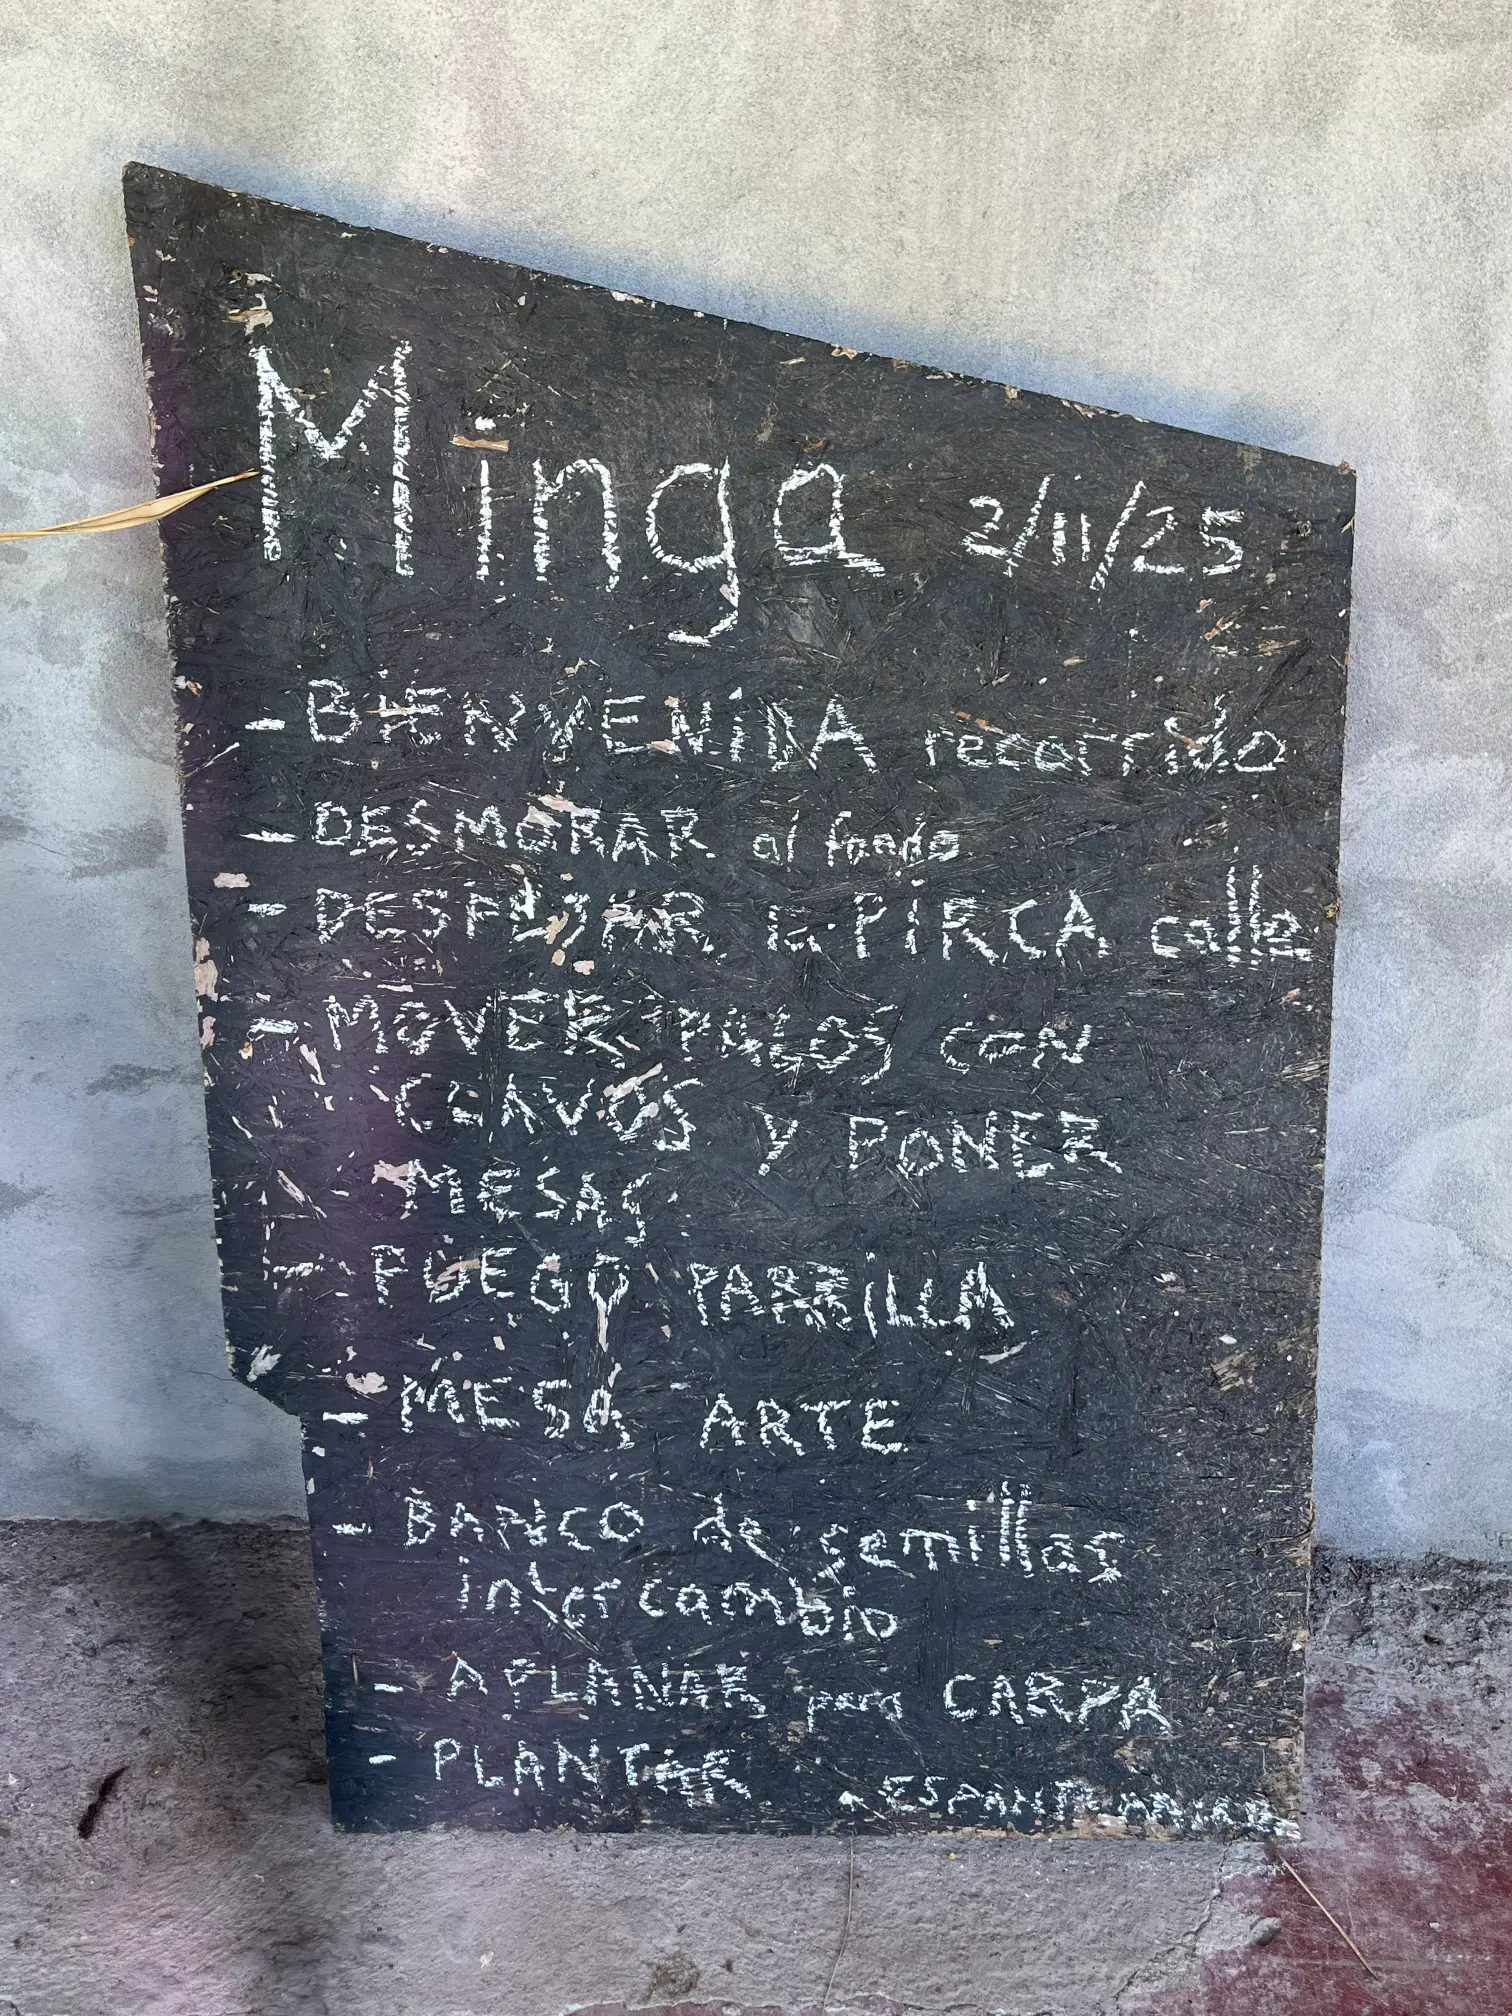 Minga 2/11/25
- BIENVENIDA recorrido
- DESMORAR al fondo
- DESPEJAR la PIRCA calle
- MOVER PALOS CON
CLAVOS Y PONER
MESAS
- FUEGO PARRILLA
- MESA ARTE
- BANCO de semillas
intercambio
- APLANAR para CARPA
- PLANTAR